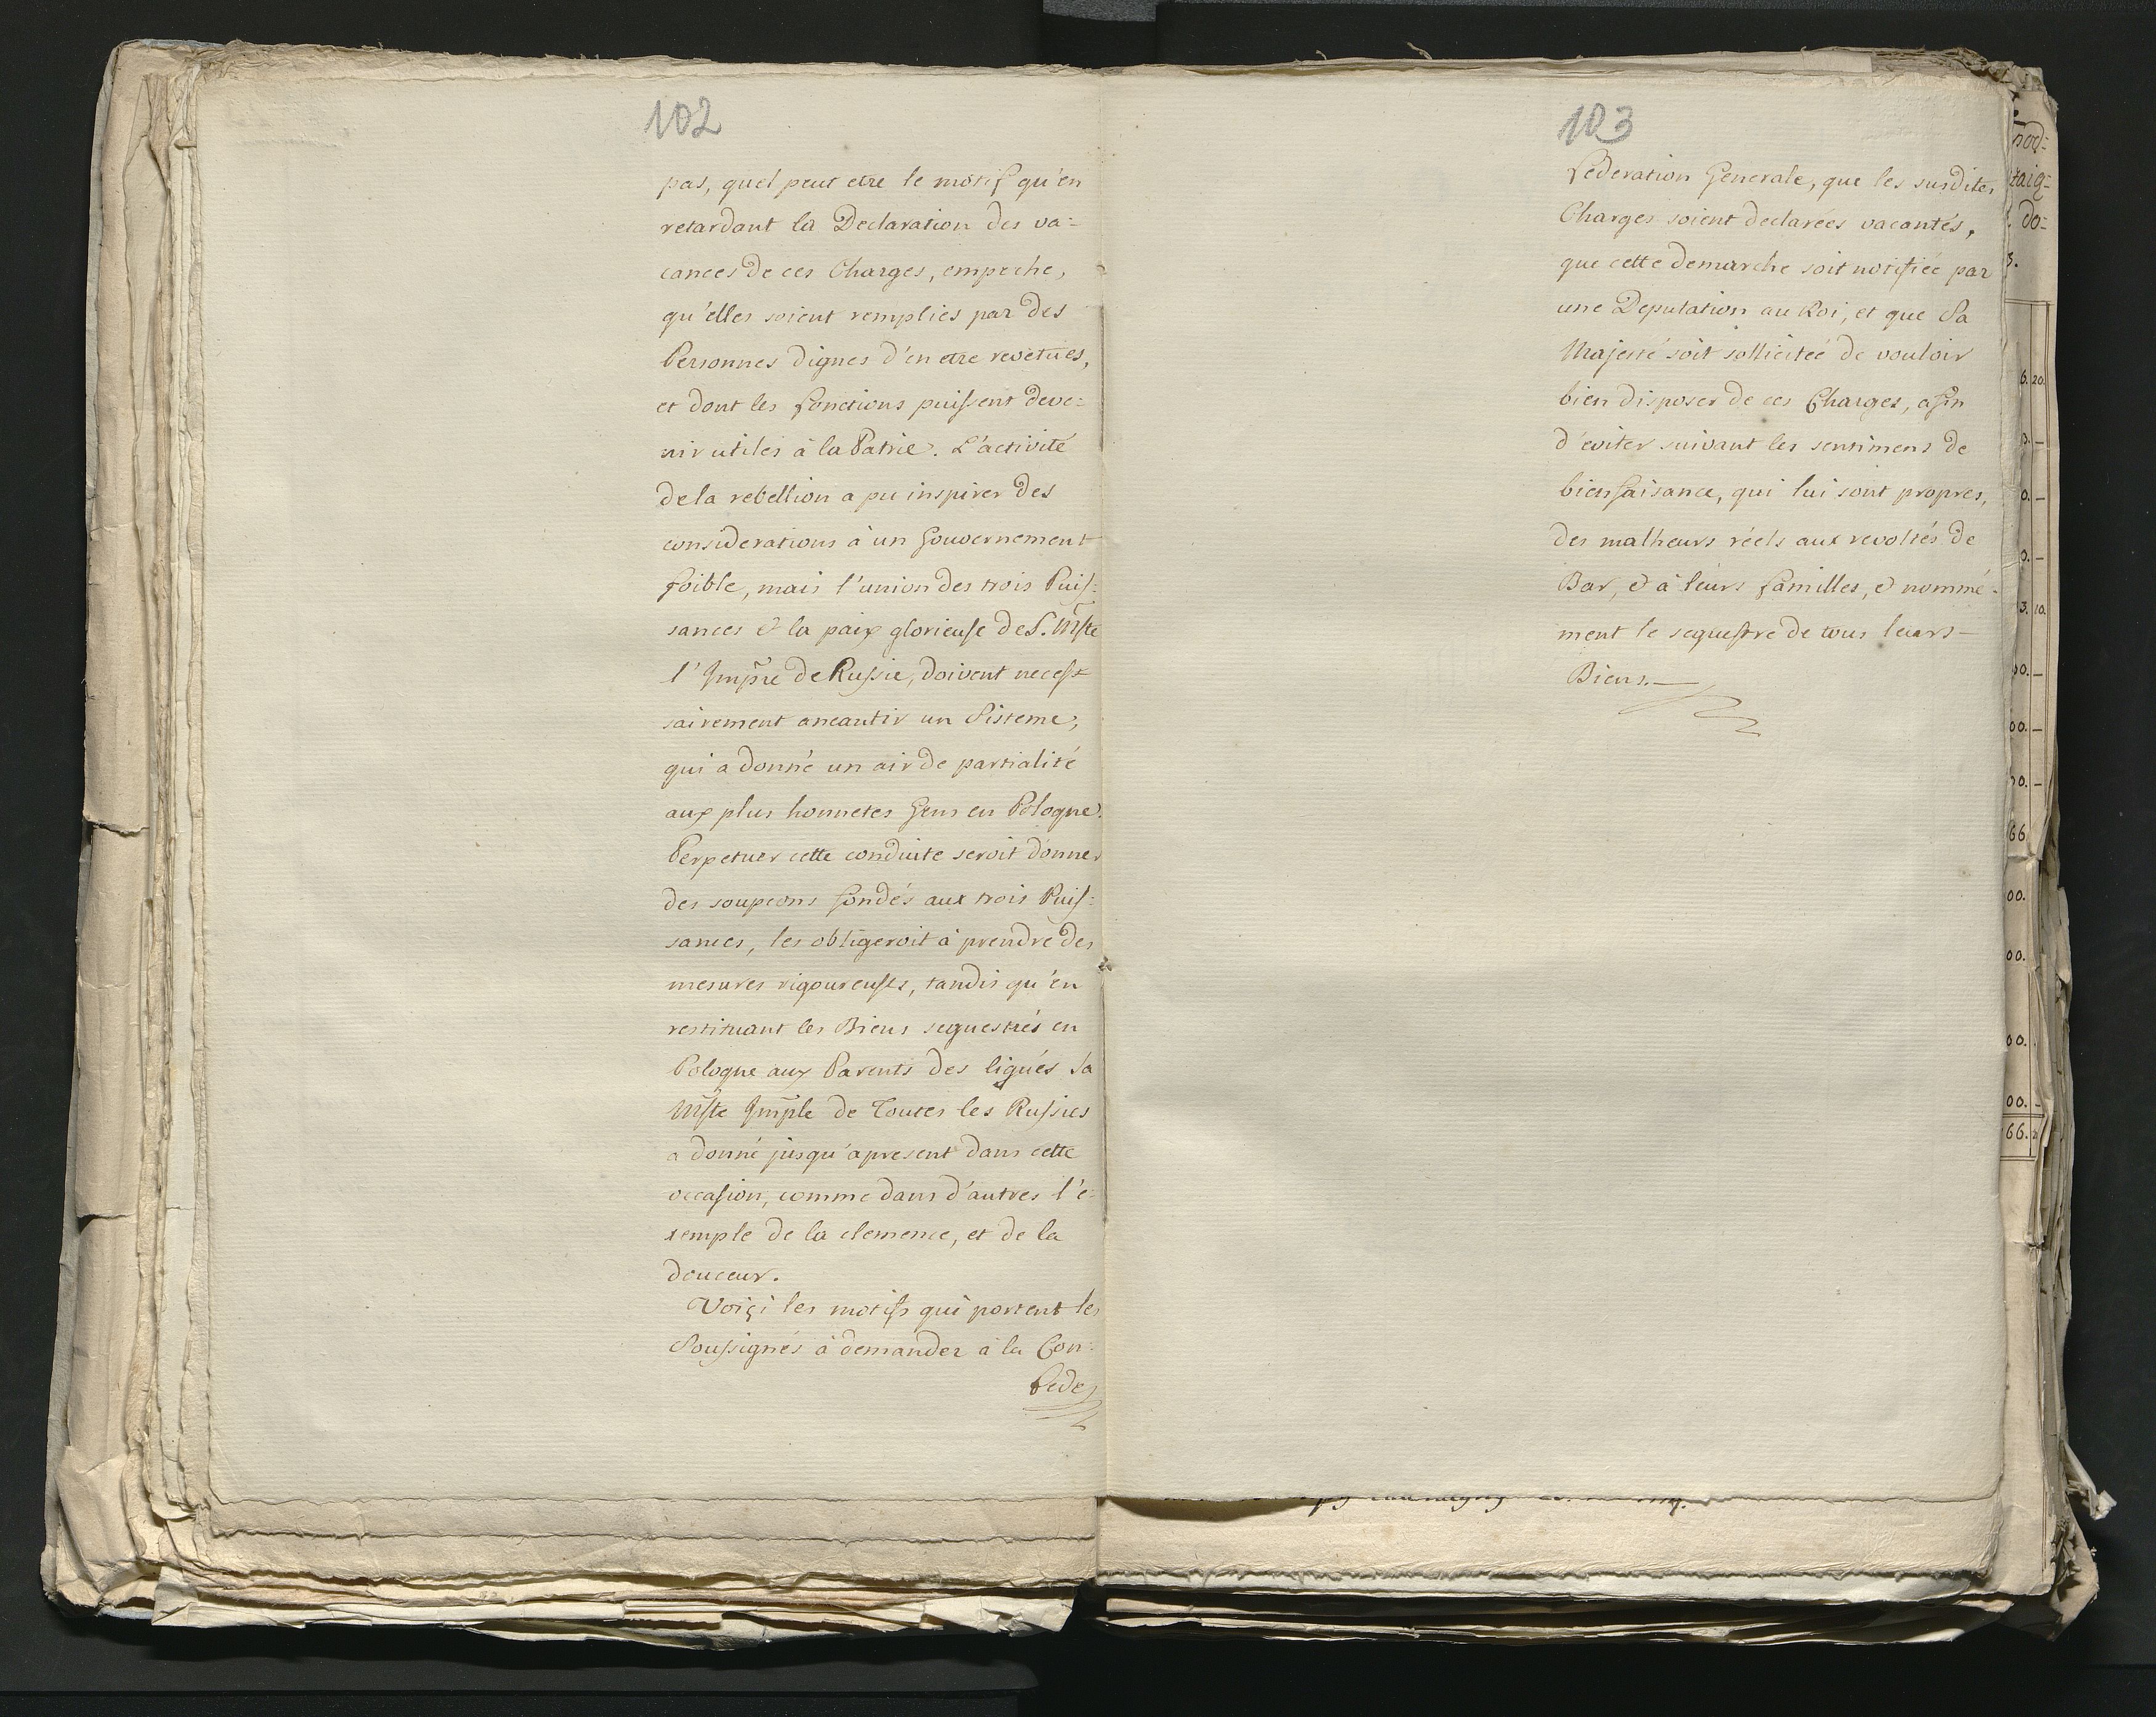 102
pas, quel peut etre le motif qu'en
retardant la Declaration des va=
cances de ces Charges, empeche,
qu'elles soient remplies par des
Personnes dignes d'en etre revetues,
et dont les fonctions puissent deve=
nir utiles à la Patrie. L'activité
de la rebellion a pu inspirer des
considerations à un Gouvernement
foible, mais l'union des trois Puis=
sances & la paix glorieuse de S. Mste
l'Impre de Russie, doivent neces=
sairement aneantir un Sisteme,
qui a donné un air de partialité
aux plus honnetes Gens en Pologne.
Perpetuer cette conduite seroit donner
des soupcons fondés aux trois Puis=
sances, les obligeroit à prendre des
mesures rigoureuses, tandis qu'en
restituant les Biens sequestrés en
Pologne aux Parents des ligués Sa
Mste Imple de Toutes les Russies
a donné jusqu'apresent dans cette
occasion, comme dans d'autres l'e=
xemple de la clemence, et de la
douceur.
Voiçi les motifs qui portent les
Soussignés à demander à la Con=
fede
103
federation Generale, que les susdites
Charges soient declarées vacantés,
que cette demarche soit notifiée par
une Deputation au Roi, et que Sa
Majesté soit sollicitée de vouloir
bien disposer de ces Charges, afin
d'eviter suivant les sentimens de
bienfaisance, qui lui sont propres,
des malheurs réels aux revoltés de
Bar, & à leurs familles, & nommé=
ment le sequestre de tous leurs
Biens.
nod=
taig=
do=
6. 20.
0. —
0. —
3. 10.
00. —
00. —
00. —
66
00.
00.
00.
00. —
66.